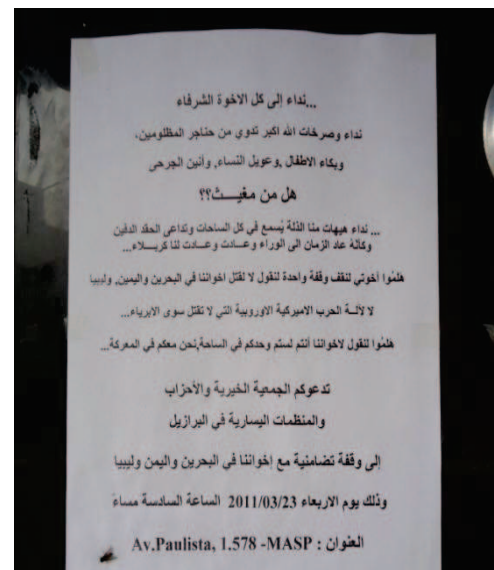 ...نداء إلى كل الاخوة الشرفاء
نداء وصرخات الله اكبر تدوي من حناجر المظلومين،
وبكاء الاطفال ,وعويل النساء, وأنين الجرحى
هل من مغيـــث؟؟
... نداء هيهات منا الذلة يُسمع في كل الساحات وتداعى الحقد الدفين
وكأنهُ عاد الزمان الى الوراء وعــادت وعــادت لنا كربــلاء...
هلمُوا أخوتي لنقف وقفة واحدة لنقول لا لقتل اخواننا في البحرين واليمن, وليبيا
لا لألــة الحرب الاميركية الاوروبية التي لا تقتل سوى الابرياء...
هلمُوا لنقول لاخواننا أنتم لستم وحدكم في الساحة,نحن معكم في المعركة...
تدعوكم الجمعية الخيرية والأحزاب
والمنظمات اليسارية في البرازيل
إلى وقفة تضامنية مع إخواننا في البحرين واليمن وليبيا
وذلك يوم الاربعاء 2011/03/23 الساعة السادسة مساءً
العنوان : Av.Paulista, 1.578 -MASP